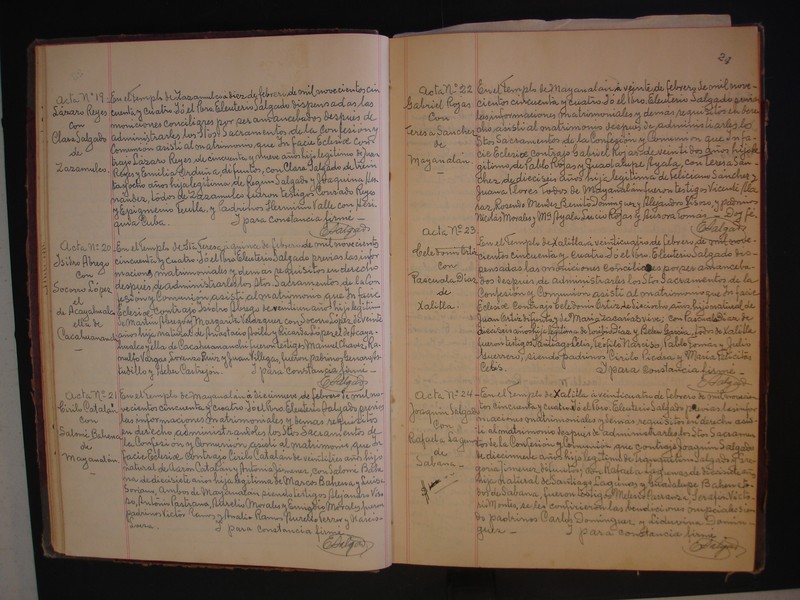 Acta Nº 19
Lázaro Reyes
con
Clara Salgado
de
Zazamulco.
En el Templo de Zazamulco a diez de febrero de mil novecientos cin
cuenta y cuatro Yó el Pbro. Eleuterio Salgado dispensadas las
moniciones conciliares por ser amancebados después de
administrarles los Stos. Sacramentos de la Confesión y
Comunión asistí al matrimonio que In facie Eclesie Con
trajo Lázaro Reyes, de cincuenta y nueve años hijo legítimo de Juan
Reyes y Emilia difuntos, con Clara Salgado de trein
ta y ocho años hija legítima de Regino Salgado y Joaquina Her
nández, todos de Zazamulco fueron testigos Conrado Reyes
y Epigmenio y padrinos Herminio Valle con
Cuba. I para constancia firmé
E Salgado
Acta Nº 20
Isidro Abrego
con
Socorro López
el
de Acayahualco
ella de
Cacahuananche
En el Templo de Sta Teresa, a quince de febrero de mil novecientos
cincuenta y cuatro Yó el Pbro. Eleuterio Salgado previas las infor
maciones matrimoniales y demas requisitos en derecho
después de administrarles los Stos. Sacramentos, de la Con
fesión y Comunión, asistí al matrimonio que In facie
Eclesie, contrajo Isidro Abrego de veintiun años hijo legítimo
de Martín Abrego y Margarita Velázquez con Socorro López de veinte
años hija natural de y Ricarda López el de Acaya
hualco y ella de Cacahuananche fueron testigos Manuel Chávez, Ra
nulfo Vargas Lorenzo Ruiz y Juan Villegas, fueron padrinos
y Castrejón. I para constancia firmé
E Salgado
Acta Nº 21
Cirilo Catalán
con
Salomé Bahena
de
Mayanalán
En el Templo de Mayanalán a diecinueve de febrero de mil no
vecientos cincuenta y cuatro Yó el Pbro. Eleuterio Salgado previas
las informaciones matrimoniales y demas requisitos
en derecho administrarles los Stos. Sacramentos de
la Confesión y Comunión asistí al matrimonio que In
facie Eclesie Contrajo Cirilo Catalán de veintitres años hijo
natural de Aarón Catalán y Antonia Jiménez con Salomé Bahe
na de diecisiete años hija legítima de Marcos Bahena y Luisa
Soriano, Ambos de Mayanalán siendo testigos Alejandro Vis
so, Antonio Pastrana, Aurelio Morales y Morales, fueron
padrinos Victor Ramos y Amalia Ramos Aurelio
I para constancia firmé
E Salgado
23
Acta Nº 22
Gabriel Rojas
con
Teresa Sánchez
de
Mayanalán.
En el Templo de Mayanalán a veinte de febrero de mil nove-
cientos cincuenta y cuatro Yó el Pbro. Eleuterio Salgado previas
las informaciones matrimoniales y demas requisitos en dere
cho, asistí al matrimonio después de administrarles los
Stos. Sacramentos de la Confesión y Comunión que In fa
cie Eclesie Contrajo Gabriel Rojas de veintidos años hijo le
gítimo, de Pablo Rojas y Guadalupe Ayala, con Teresa Sán
chez, de dieciseis años hija legítima de Feliciano Sánchez y
Juana Flores todos de Mayanalán fueron testigos Vicente Alva
rez, Rosendo Mendez, Benito Domínguez y Alejandro Visso, y padrinos
Nicolás Morales y Mª Ayala, Lucio Rojas y Doy fé.
E Salgado
Acta Nº 23
Celedonio Ortiz
con
Pascuala Díaz
de
Xalitla.
En el Templo de Xalitla a veintiuno de febrero de mil nove-
cientos cincuenta y cuatro Yó el Pbro. Eleuterio Salgado dis-
pensadas las moniciones Conciliares por ser amanceba
dos después de administrarles los Stos. Sacramentos de la
Confesión y Comunión asistí al matrimonio que In facie
Eclesie Contrajo Celedonio Ortiz de años, hijo natural de
Juan Ortiz difunto y de María Zacarías vive, con Pascuala Díaz de
dieciseis años hija legítima de Díaz y García, todos de Xalitla
fueron testigos Santiago Celis, Teófilo Naraiso, Pablo y Julio
Guerrero, siendo padrinos Cirilo Piedra y María Felicitas
Celis. I para constancia firmé
E Salgado
Acta Nº 24
Joaquín Salgado
con
Rafaela Lagunas
de
Sabana.
En el Templo de Xalitla a veintiuno de febrero de mil novecien
tos cincuenta y cuatro Yó el Pbro. Eleuterio Salgado previas las infor
maciones matrimoniales y demas requisitos en derecho asis
tí al matrimonio después de administrarles los Stos Sacramen
tos de la Confesión y Comunión, que contrajo Joaquín Salgado
de diecinueve años hijo legítimo de Salgado y Gre
goria Jiménez difuntos, con Rafaela Lagunas, de diecisiete años
hija natural de Santiago Lagunas y Guadalupe Bahena to
dos de Sabana, fueron testigos Melecio Carranza, Serafín Victo
ria Montes, se les confirieron las bendiciones nupciales sien
do padrinos Carlos Domínguez y Liduvina Domín-
guez. I para constancia firmé
E Salgado